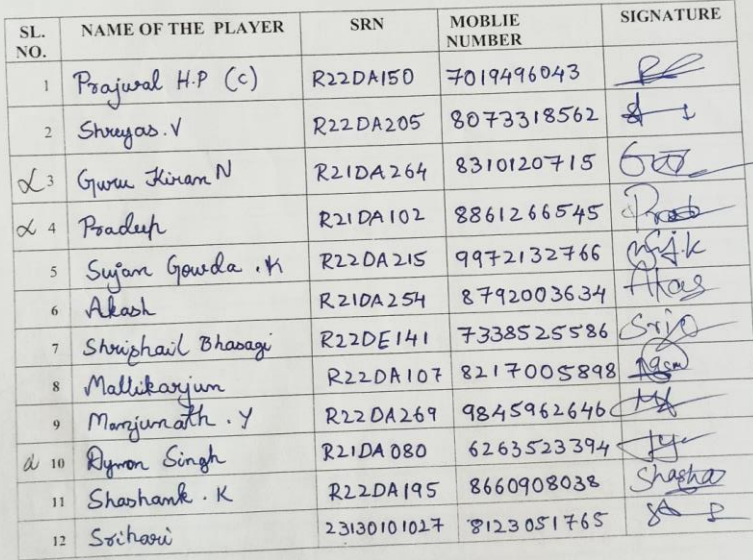 SL. NO. NAME OF THE PLAYER SRN MOBLIE NUMBER SIGNATURE
1 Prajwal H.P (C) R22DA150 7019496043
2 Shreyas. V R22DA205 8073318562
3 Guru Kiran N R21DA264 8310120715
4 Pradeep R21DA102 8861266545
5 Sujan Gowda . K R22DA215 9972132766
6 Akash R21DA254 8792003634 Akas
7 Shrishail Bhasagi R22DE141 7338525586
8 Mallikarjun R22DA107 8217005898
9 Manjunath . Y R22DA269 9845962646
10 Singh R21DA080 6263523394
11 Shashank . K R22DA195 8660908038 Shasha
12 Srihari 23130101027 8123051765